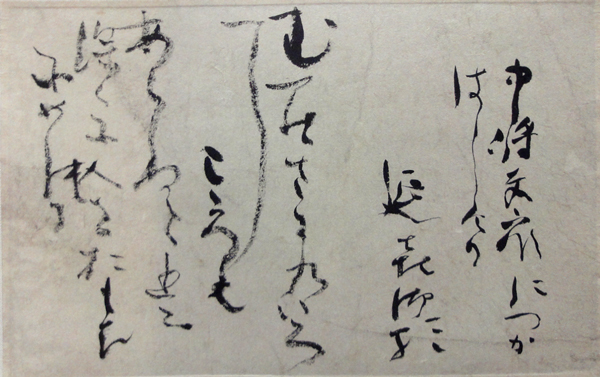 中将更衣につか
はしける
延喜御哥
むらさきのいろ
に
こゝろは
あらねとも
深くそ人をおもひ
そめつる